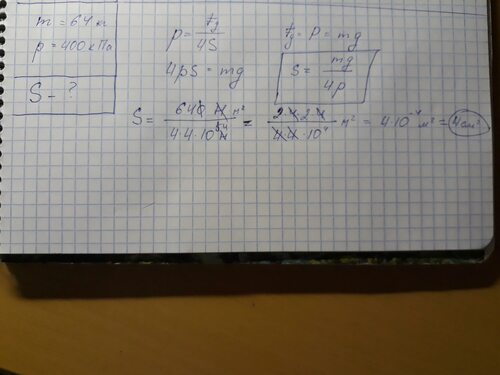 m = 64 кг
p = 400 кПа
S - ?
p = Fg / 4S
4pS = mg
Fg = P = mg
S = mg / 4p
S = 640 Н м² / 4·4·10⁵ Н = 2·4·2·4 / 4·4·10⁴ м² = 4·10⁻⁴ м² = 4 см²